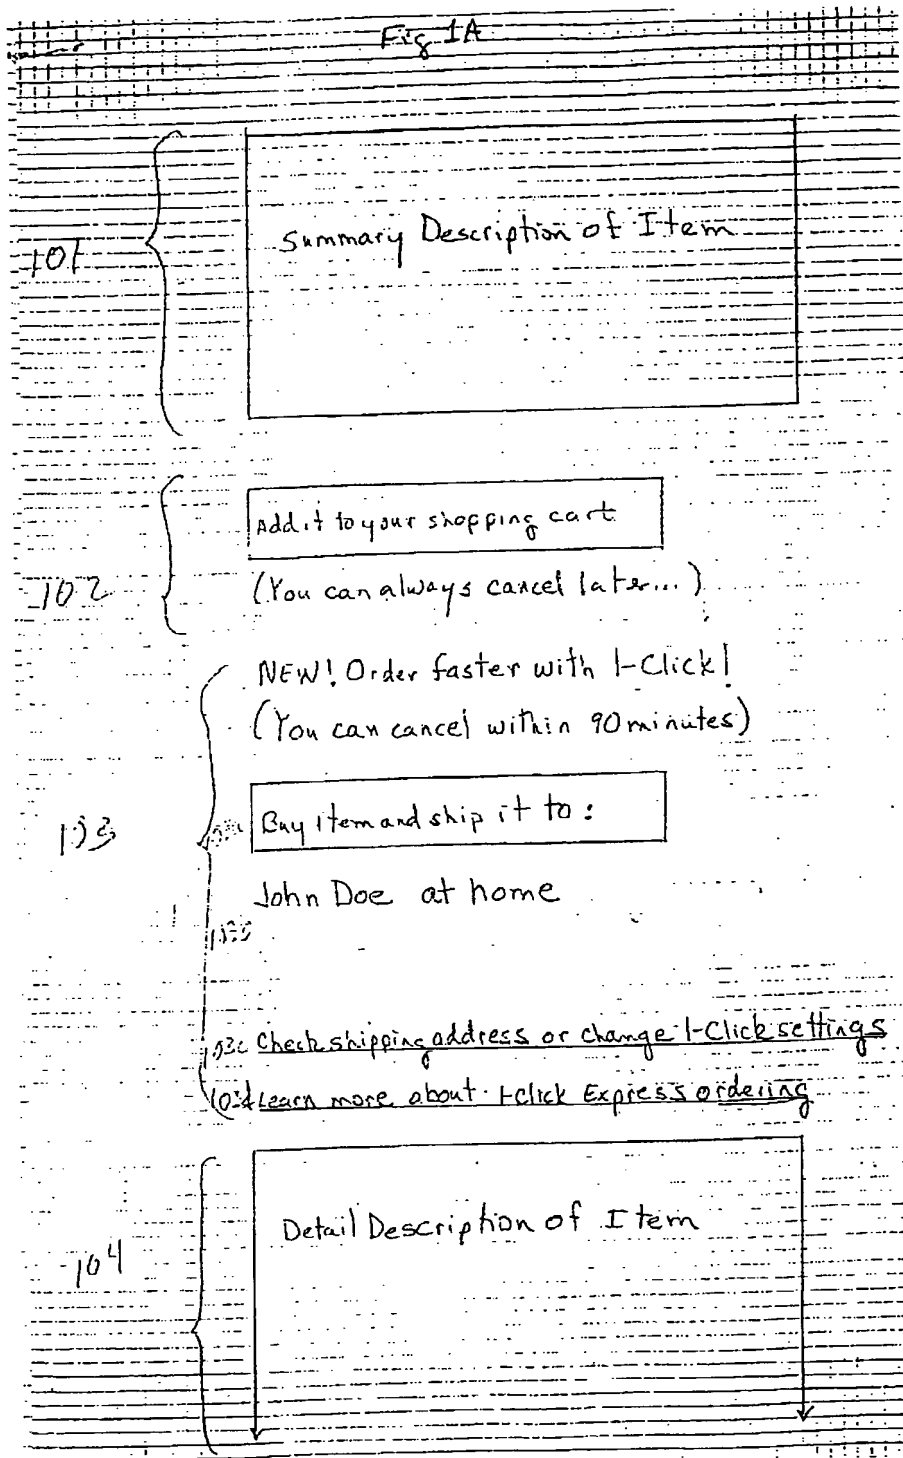 Fig 1A
101
Summary Description of Item
Add it to your shopping cart
102
(You can always cancel later...)
NEW! Order faster with 1-Click!
(You can cancel within 90 minutes)
103
Buy item and ship it to:
John Doe at home
103c Check shipping address or change 1-Click settings
103d Learn more about 1-Click Express ordering
Detail Description of Item
104